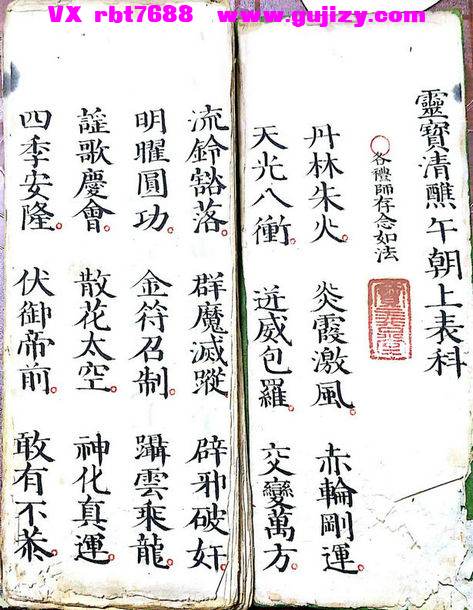 VX rbt7688 www.gujizy.com
靈寶清醮午朝上表科
各禮師存念如法
丹林朱火 炎霞激風 赤輪剛運
天光八衝 迸威包羅 交變萬方
流鈴豁落 群魔滅蹤 辟邪破奸
明曜圓功 金符召制 躡雲乘龍
謡歌慶會 散花太空 神化真運
四季安隆 伏御帝前 敢有不恭